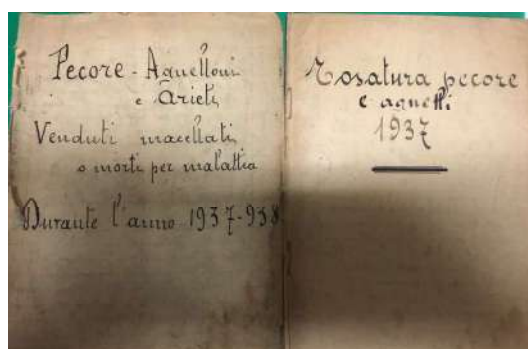 Pecore - Agnelloni
e Arieti
Venduti macellati
o morti per malattia
Durante l'anno 1937-938
Tosatura pecore
e agnelli
1937